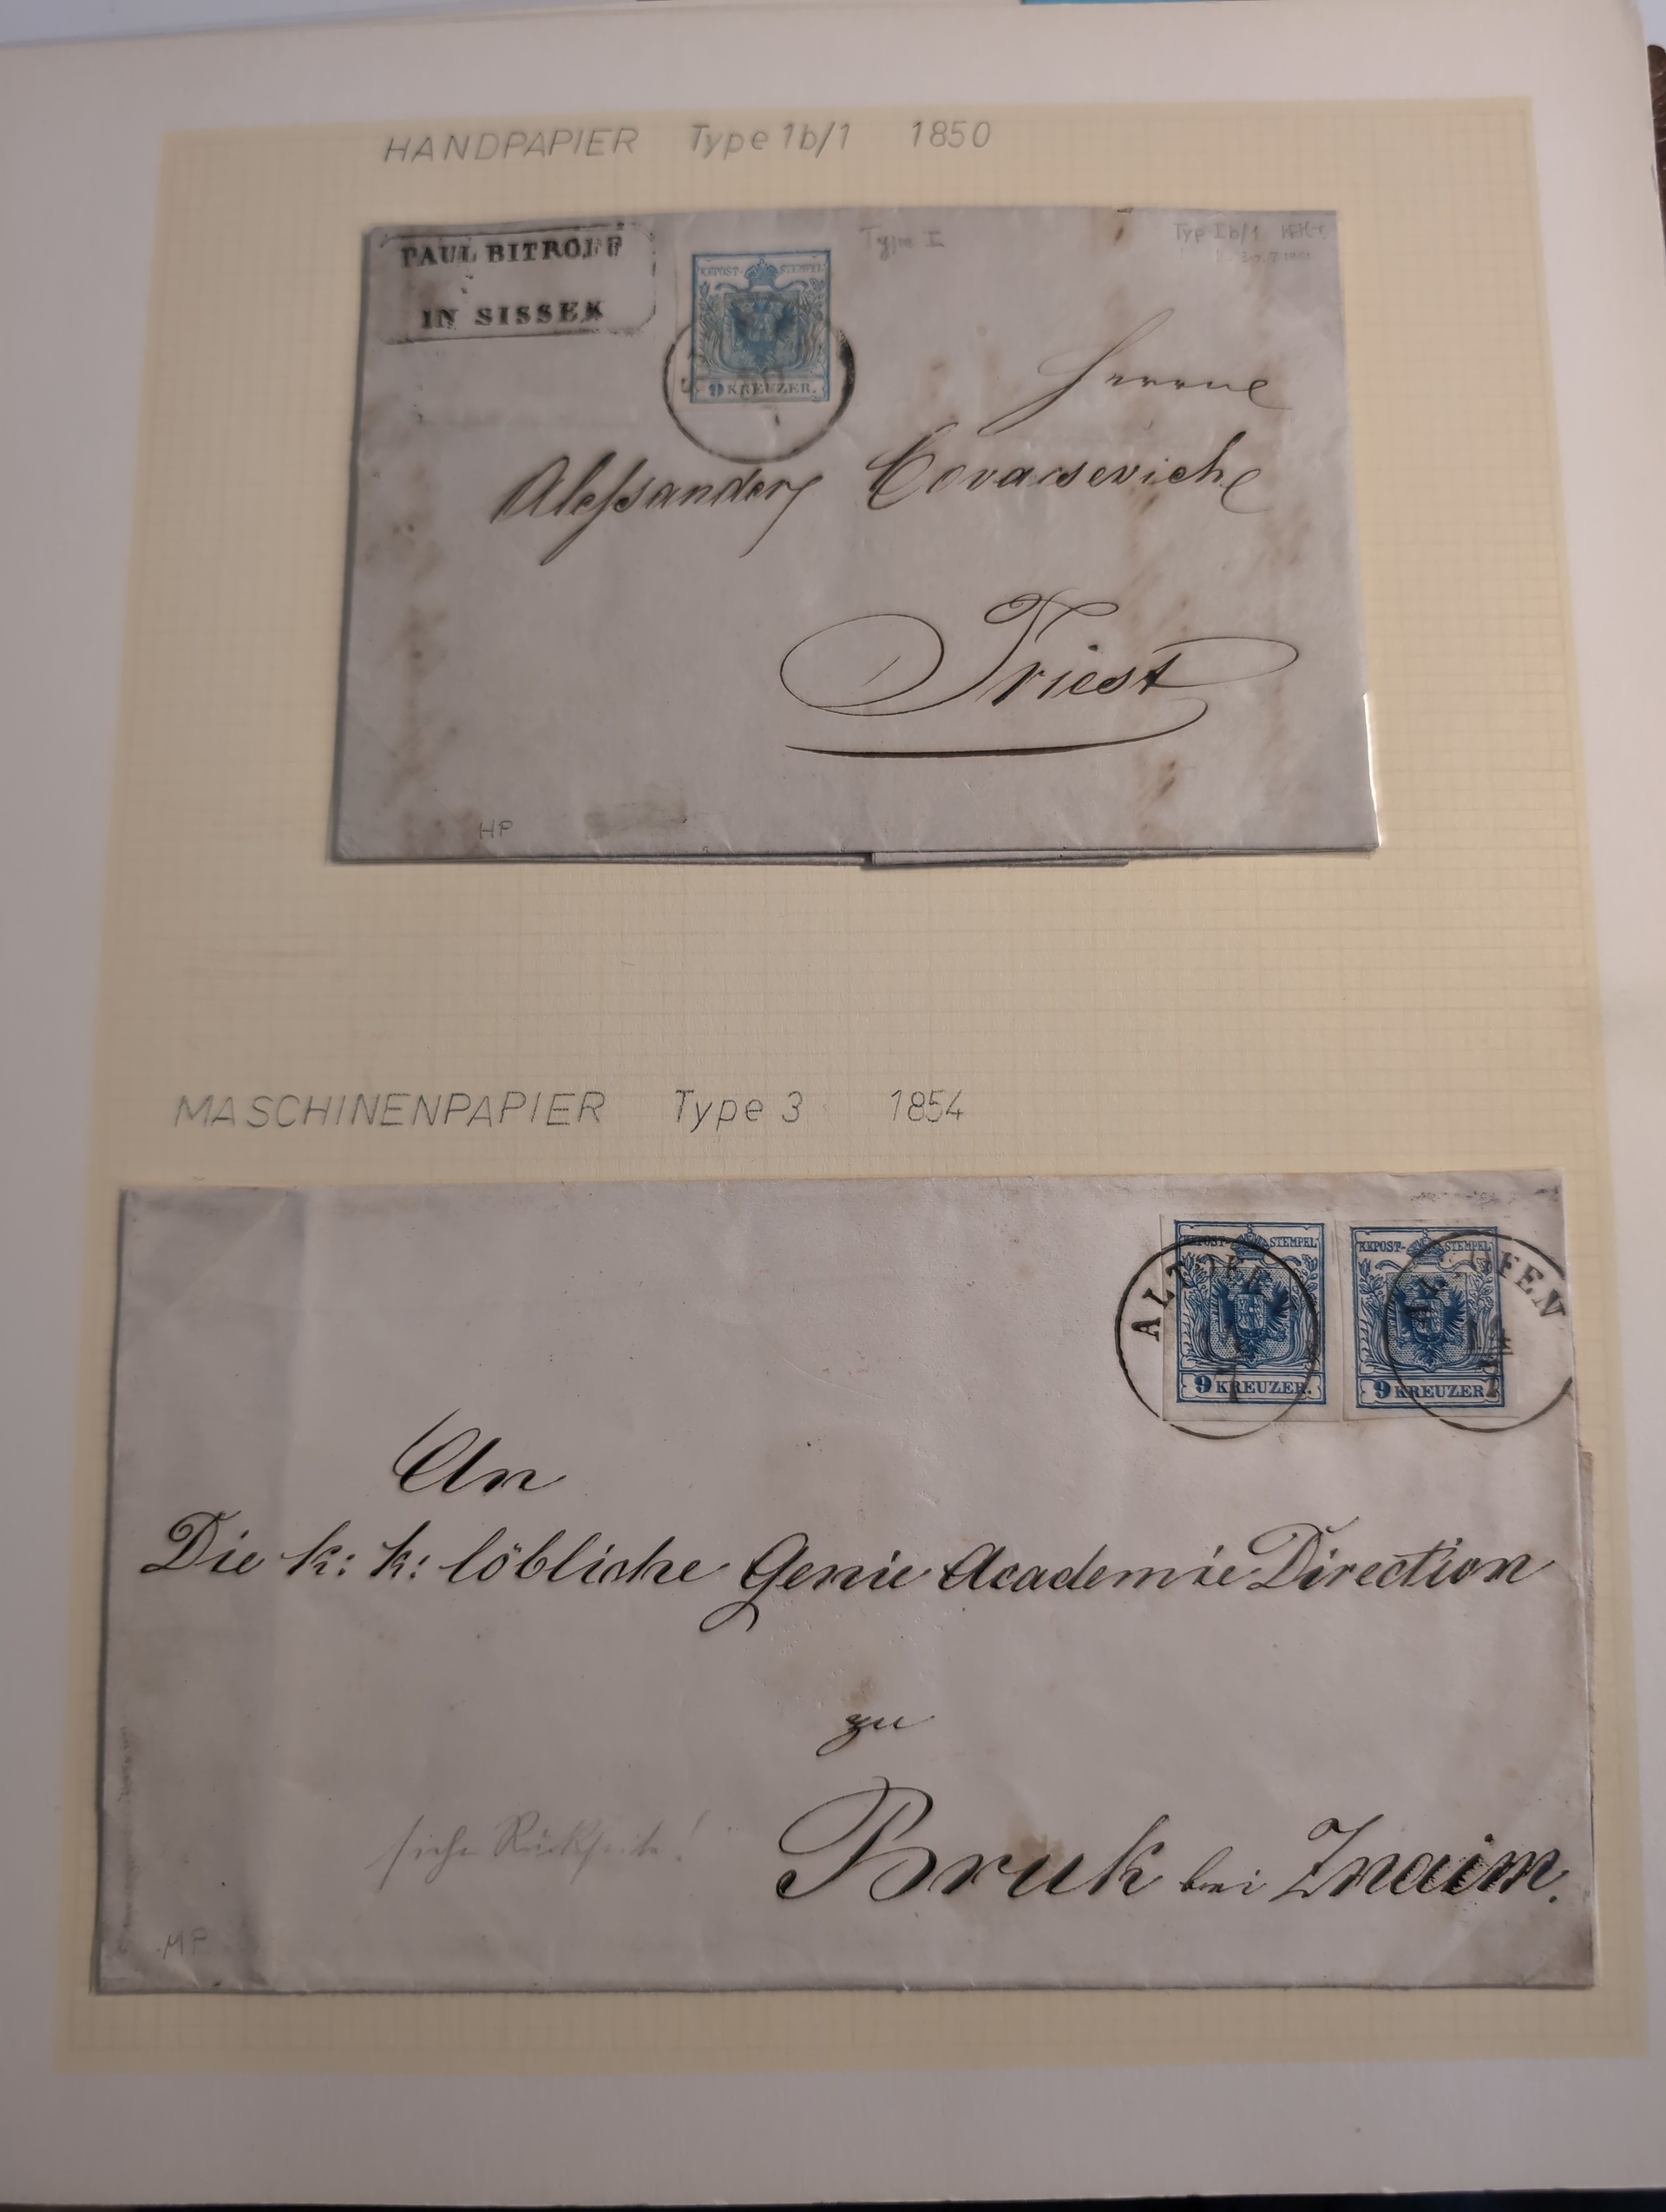 HANDPAPIER Type 1b/1 1850
PAUL BITROFF
IN SISSEK
Type I
Typ Ib/1
KKPOST-STEMPEL
9 KREUZER.
Herrne
Alessandery Covacseviche
Triest
HP
MASCHINENPAPIER Type 3 1854
KKPOST-STEMPEL KKPOST-STEMPEL
ALTOFEN ALTOFEN
9 KREUZER. 9 KREUZER.
An
Die k: k: löbliche Genie Academie Direction
zu
siehe Rückseite!
Bruk bei Znaim.
MP